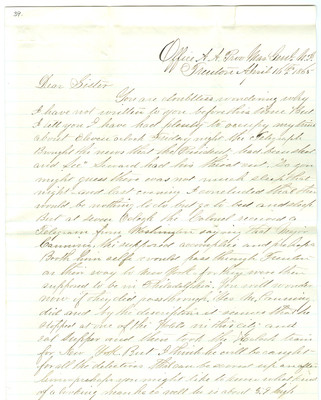 39.
Office A. A. Pro. Mar. Genl. N.J.
Trenton April 18th 1865
Dear Sister
You are doubtless wondering why
I have not written to you before this since but
I tell you I have had plenty to occupy my time
about Eleven o'clock Friday night the telegraph
Brought the news that the President had been shot
and Sec. Seward had his throat cut. So you
might guess there was not much sleep that
night and last evening I concluded that there
would be nothing to do but go to bed and sleep
But at seven O'clock the Colonel received a
Telegram from Washington saying that
the supposed accomplice and perhaps
Booth himself would pass through Trenton
on their way to New York for they were then
supposed to be in Philadelphia. You will wonder
now if they did pass through. Yes the
did and by the description it seems that he
stopped at one of the Hotels in this city and
eat supper and then took the train
for New York But I think he will be caught
for all the detectives that can be scared up are after
him perhaps you might like to know what kind
of a looking man he is well he is about 5.8 high